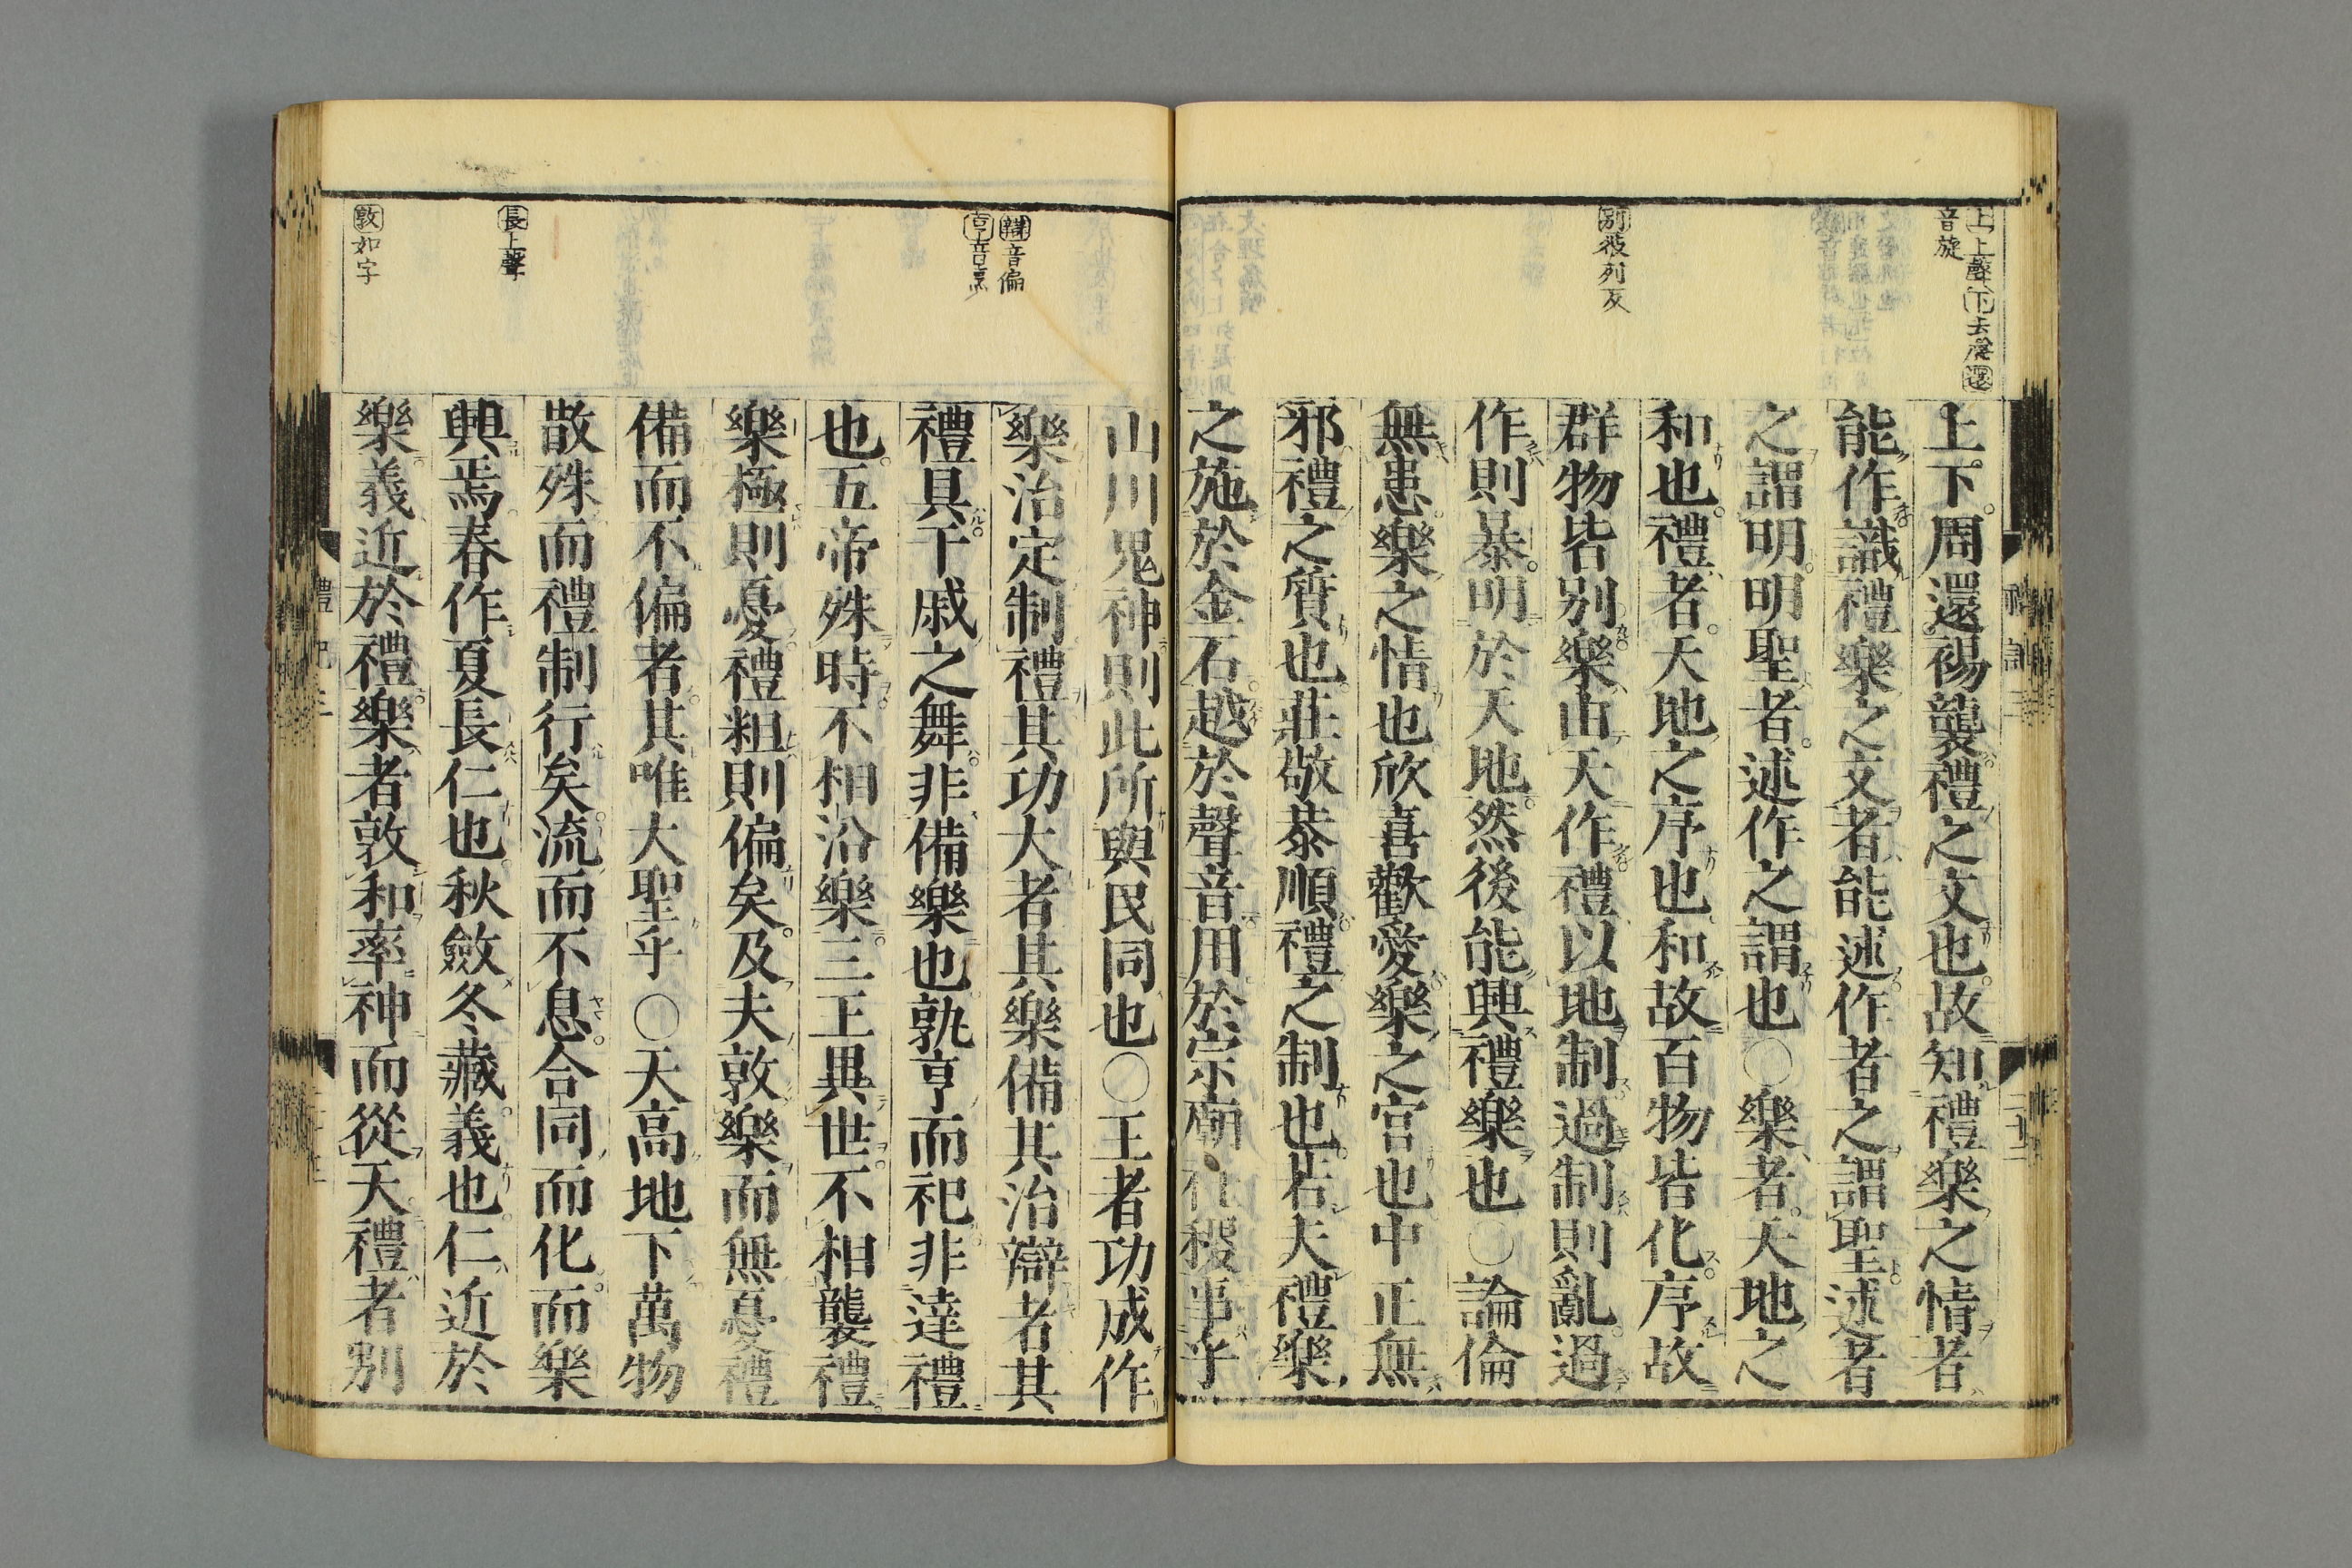 上上聲下去聲還
音旋
別彼列反
上下周還裼襲禮之文也故知禮樂之情者
能作識禮樂之文者能述作者之謂聖述者
之謂明明聖者述作之謂也○樂者天地之
和也禮者天地之序也和故百物皆化序故
群物皆別樂由天作禮以地制過制則亂過
作則暴明於天地然後能興禮樂也○論倫
無患樂之情也欣喜歡愛樂之官也中正無
邪禮之質也莊敬恭順禮之制也若夫禮樂
之施於金石越於聲音用於宗廟社稷事乎
辯音偏
亨音烹
長上聲
敦如字
山川鬼神則此所與民同也○王者功成作
樂治定制禮其功大者其樂備其治辯者其
禮具干戚之舞非備樂也孰亨而祀非達禮
也五帝殊時不相沿樂三王異世不相襲禮
樂極則憂禮粗則偏矣及夫敦樂而無憂禮
備而不偏者其唯大聖乎○天高地下萬物
散殊而禮制行矣流而不息合同而化而樂
興焉春作夏長仁也秋斂冬藏義也仁近於
樂義近於禮樂者敦和率神而從天禮者別
禮記三